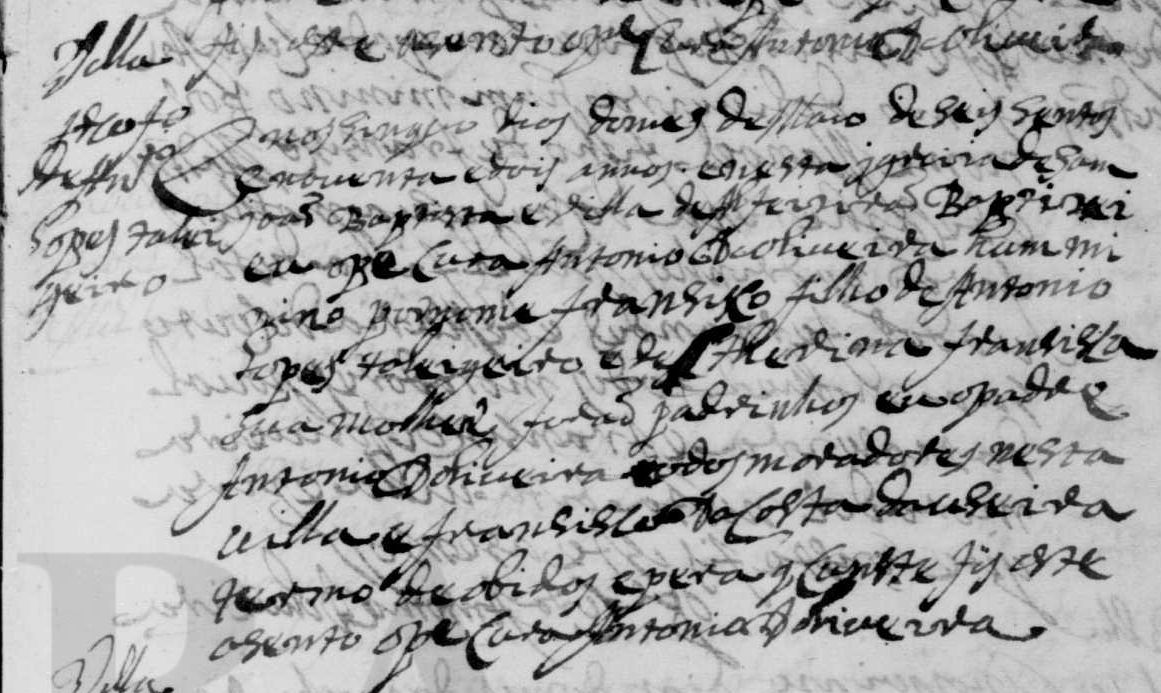 fis este asento o pe Cura Antonio de oliueira
Villa
frco fo
de Anto
Lopes taleigeiro
Aos sinquo dias do mes de Maio de seis sentos
e nouenta e dois annos e nesta igreija de sam
joaõ Baptista e villa de Baptizei
eu o pe Cura Antonio de oliueira hum mi
nino por nome fransisco filho de Antonio
lopes taleigeiro e de Catherina fransisca
sua molher foraõ padrinhos eu o padre
Antonio de oliueira todos moradores nesta
uilla e fransisco da Costa da useira
termo de obidos e pera q conste fis este
asento o pe Cura Antonio de oliueira
Villa